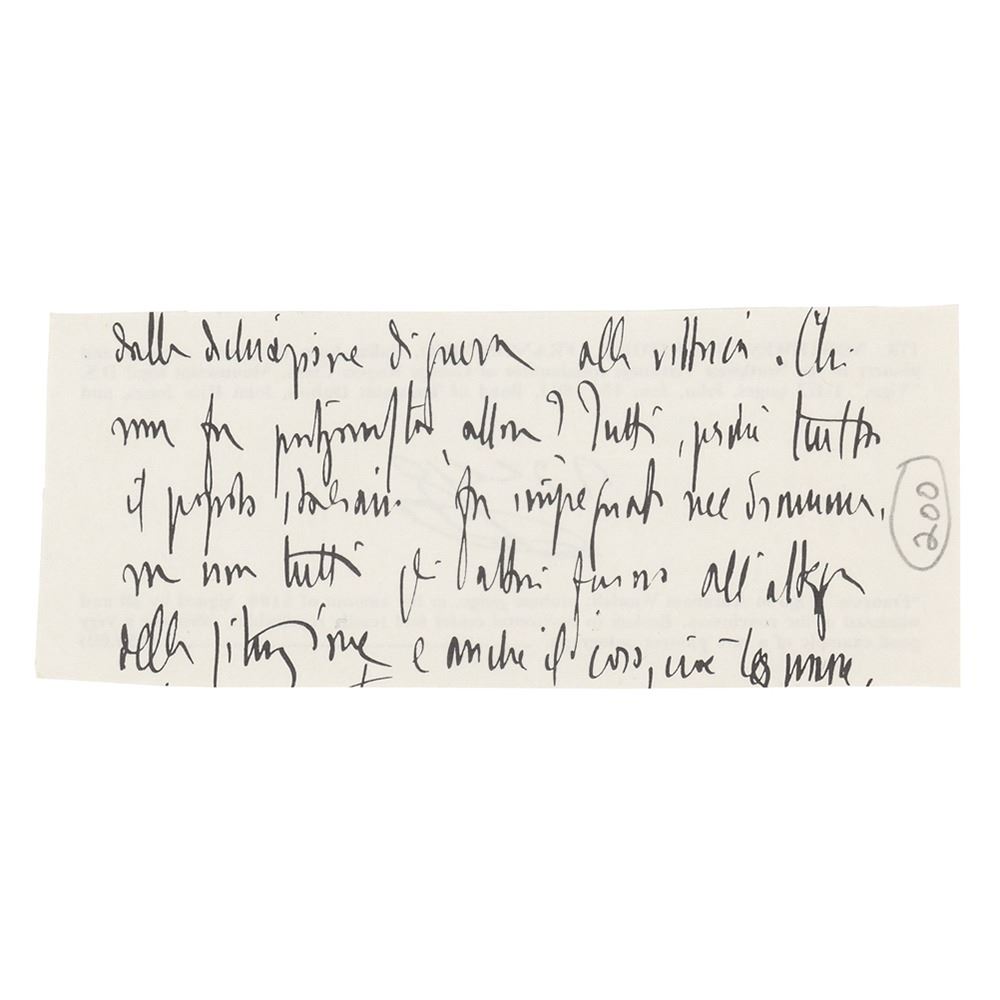 dalla dichiarazione di guerra alla vittoria. Chi
non fu protagonista allora? Tutti, perché tutto
il popolo italiano fu impegnato nel dramma,
ma non tutti gli attori furono all'altezza
della situazione e anche il coro, cioè
200